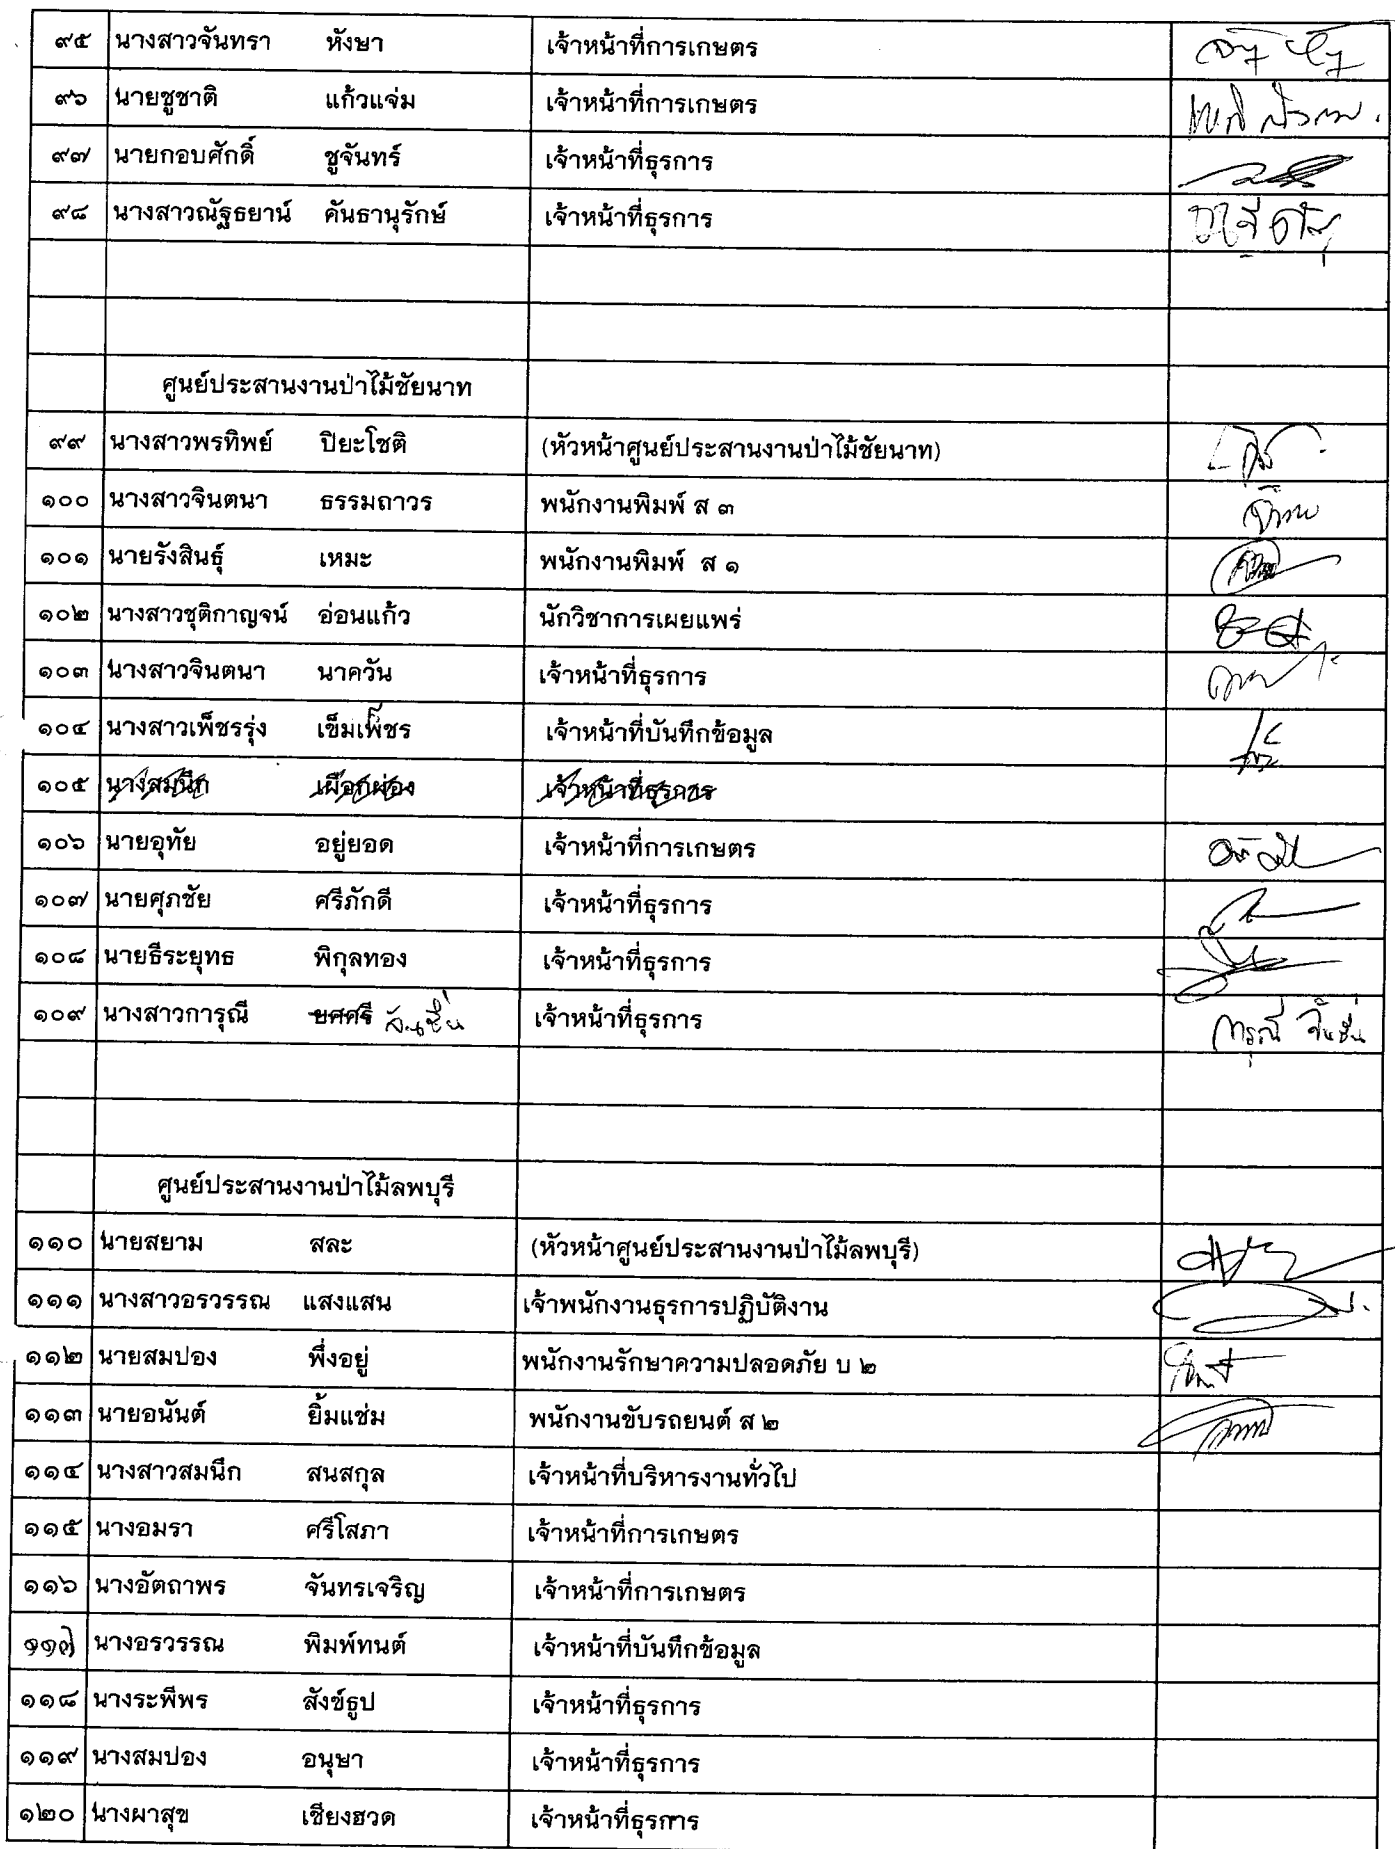 ๙๕ นางสาวจันทรา หังษา เจ้าหน้าที่การเกษตร
๙๖ นายชูชาติ แก้วแจ่ม เจ้าหน้าที่การเกษตร
๙๗ นายกอบศักดิ์ ชูจันทร์ เจ้าหน้าที่ธุรการ
๙๘ นางสาวณัฐธยาน์ คันธานุรักษ์ เจ้าหน้าที่ธุรการ
ศูนย์ประสานงานป่าไม้ชัยนาท
๙๙ นางสาวพรทิพย์ ปิยะโชติ (หัวหน้าศูนย์ประสานงานป่าไม้ชัยนาท)
๑๐๐ นางสาวจินตนา ธรรมถาวร พนักงานพิมพ์ ส ๓
๑๐๑ นายรังสินธุ์ เหมะ พนักงานพิมพ์ ส ๑
๑๐๒ นางสาวชุติกาญจน์ อ่อนแก้ว นักวิชาการเผยแพร่
๑๐๓ นางสาวจินตนา นาควัน เจ้าหน้าที่ธุรการ
๑๐๔ นางสาวเพ็ชรรุ่ง เข็มเพ็ชร เจ้าหน้าที่บันทึกข้อมูล
๑๐๕ นางสมนึก เผือกผ่อง เจ้าหน้าที่ธุรการ
๑๐๖ นายอุทัย อยู่ยอด เจ้าหน้าที่การเกษตร
๑๐๗ นายศุภชัย ศรีภักดี เจ้าหน้าที่ธุรการ
๑๐๘ นายธีระยุทธ พิกุลทอง เจ้าหน้าที่ธุรการ
๑๐๙ นางสาวการุณี ยศศรี เจ้าหน้าที่ธุรการ การุณี
ศูนย์ประสานงานป่าไม้ลพบุรี
๑๑๐ นายสยาม สละ (หัวหน้าศูนย์ประสานงานป่าไม้ลพบุรี)
๑๑๑ นางสาวอรวรรณ แสงแสน เจ้าพนักงานธุรการปฏิบัติงาน
๑๑๒ นายสมปอง พึ่งอยู่ พนักงานรักษาความปลอดภัย บ ๒
๑๑๓ นายอนันต์ ยิ้มแช่ม พนักงานขับรถยนต์ ส ๒
๑๑๔ นางสาวสมนึก สนสกุล เจ้าหน้าที่บริหารงานทั่วไป
๑๑๕ นางอมรา ศรีโสภา เจ้าหน้าที่การเกษตร
๑๑๖ นางอัตถาพร จันทรเจริญ เจ้าหน้าที่การเกษตร
๑๑๗ นางอรวรรณ พิมพ์ทนต์ เจ้าหน้าที่บันทึกข้อมูล
๑๑๘ นางระพีพร สังข์ธูป เจ้าหน้าที่ธุรการ
๑๑๙ นางสมปอง อนุษา เจ้าหน้าที่ธุรการ
๑๒๐ นางผาสุข เชียงฮวด เจ้าหน้าที่ธุรการ